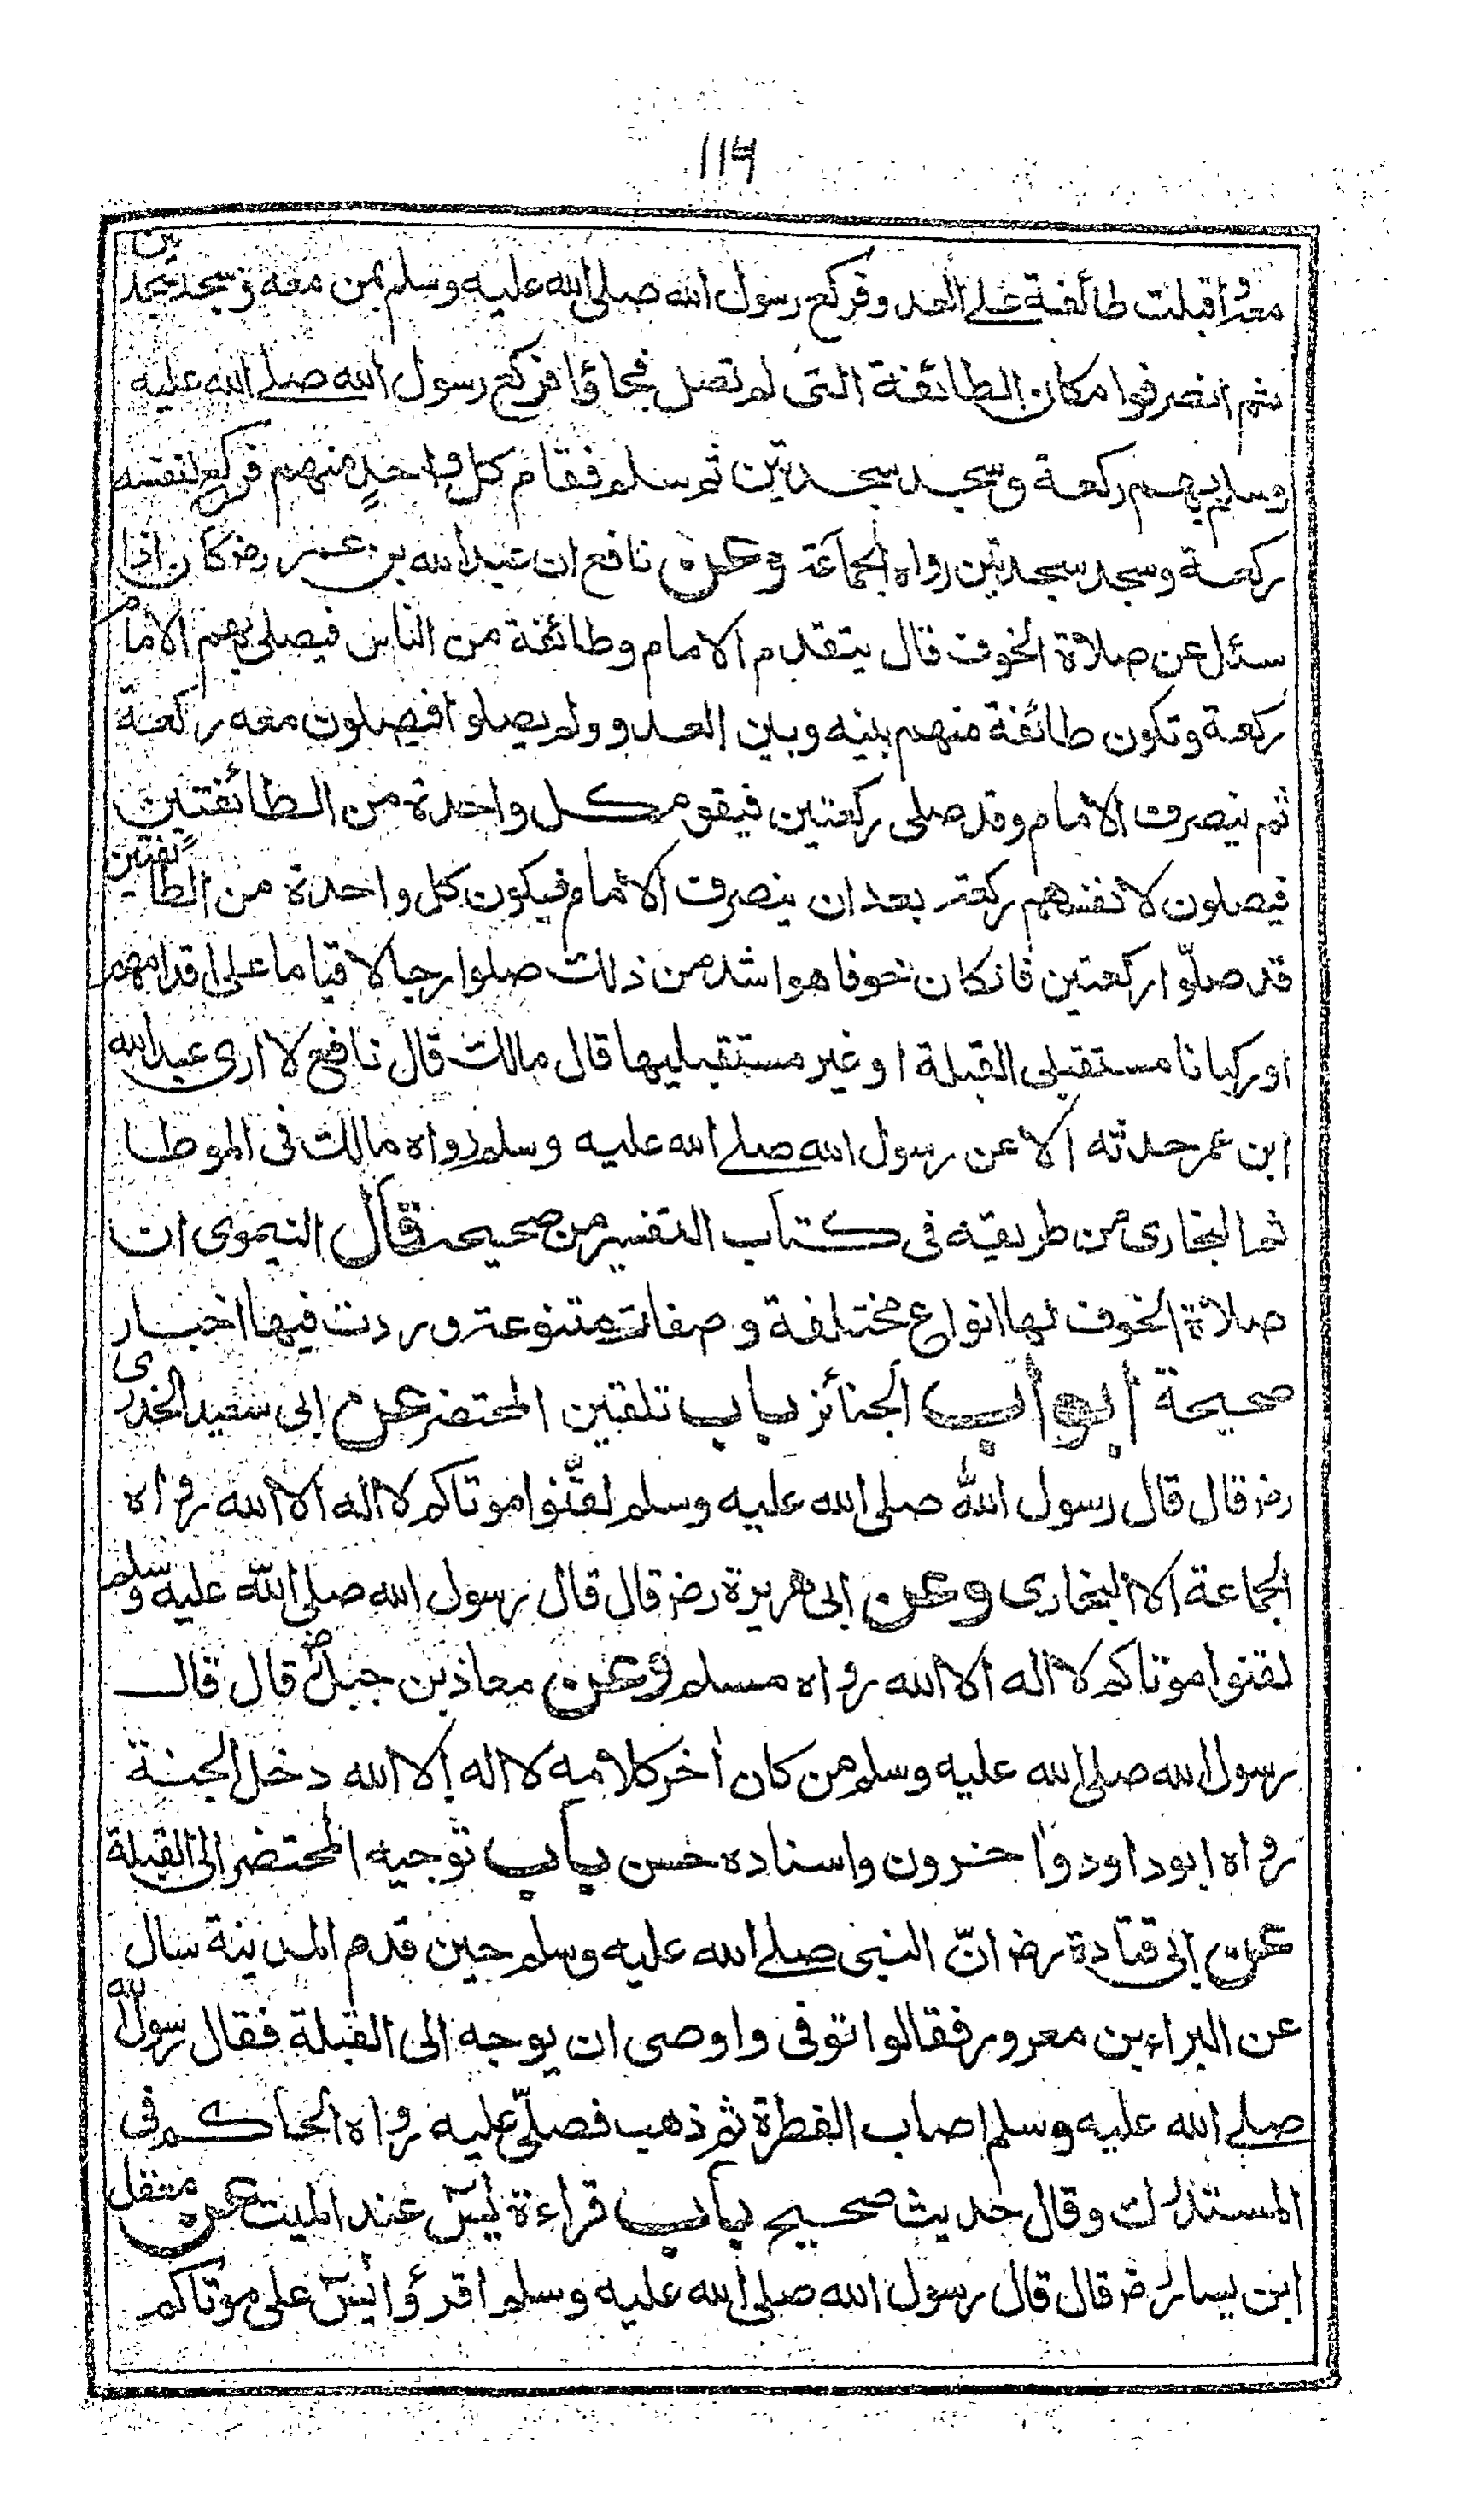 ۱۱۴
معه واقبلت طائفة على العد وفركع رسول الله صلى الله عليه وسلم بمن معه وسجد سجدتين
ثم انصرفوا مكان الطائفة التى لم تصل فجاؤا فركع رسول الله صلى الله عليه
وسلم بهم ركعة وسجد سجدتين ثم سلم فقام كل واحدٍ منهم فركع لنفسه
ركعة وسجد سجدتين رواه الجماعة وعن نافع ان عبدالله بن عمر رضـ كان اذا
سئل عن صلاة الخوف قال يتقدم الامام وطائفة من الناس فيصلى بهم الامام
ركعة وتكون طائفة منهم بينه وبين العدو ولم يصلوا فيصلون معه ركعة
ثم ينصرف الامام وقد صلى ركعتين فيقوم كل واحدة من الطائفتين
فيصلون لانفسهم ركعة بعد ان ينصرف الامام فيكون كل واحدة من الطائفتين
قد صلّوا ركعتين فانكان خوفا هو اشد من ذلك صلوا رجالا قياما على اقدامهم
او ركبانا مستقبلى القبلة او غير مستقبليها قال مالك قال نافع لا ارى عبدالله
ابن عمر حدثه الا عن رسول الله صلى الله عليه وسلم رواه مالك فى الموطا
ثم البخارى من طريقه فى كتاب التفسير من صحيحه قال النيموى ان
صلاة الخوف لها انواع مختلفة وصفات متنوعة وردت فيها اخبار
صحيحة ابواب الجنائز باب تلقين المحتضر عن ابى سعيد الخدرى
رضـ قال قال رسول الله صلى الله عليه وسلم لقّنوا موتاكم لا اله الا الله رواه
الجماعة الا البخارى وعن ابى هريرة رضـ قال قال رسول الله صلى الله عليه وسلم
لقنوا موتاكم لا اله الا الله رواه مسلم وعن معاذ بن جبل رضـ قال قال
رسول الله صلى الله عليه وسلم من كان اٰخر كلامه لا اله الا الله دخل الجنة
رواه ابوداود واٰخرون واسناده حسن باب توجيه المحتضر الى القبلة
عن ابى قتادة رضـ انّ النبى صلى الله عليه وسلم حين قدم المدينة سال
عن البراء بن معرور فقالوا توفى واوصى ان يوجه الى القبلة فقال رسول الله
صلى الله عليه وسلم اصاب الفطرة ثم ذهب فصلّى عليه رواه الحاكم فى
المستدرك وقال حديث صحيح باب قراءة يٰسٓ عند الميت عن معقل
ابن يسار رضـ قال قال رسول الله صلى الله عليه وسلم اقرؤا يٰسٓ على موتاكم